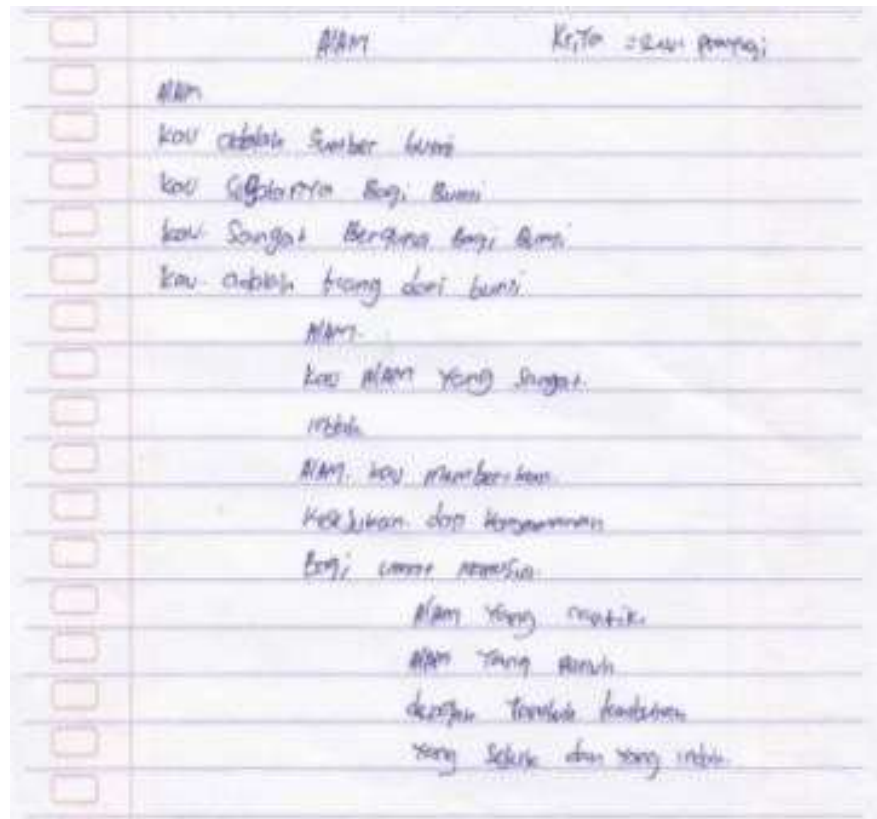 AlAM
AlAM
kau adalah Sumber bumi
kau Segalanya Bagi Bumi
kau Sangat Berguna Bagi Bumi
kau adalah trang dari bumi
AlAM.
kau AlAM Yang Sangat.
indah
AlAM. kau memberikan.
kesejukan dan kenyamanan
Bagi umat manusia.
AlAM Yang cantik.
AlAM Yang Penuh
dengan
Yang Sejuk dan Yang indah.